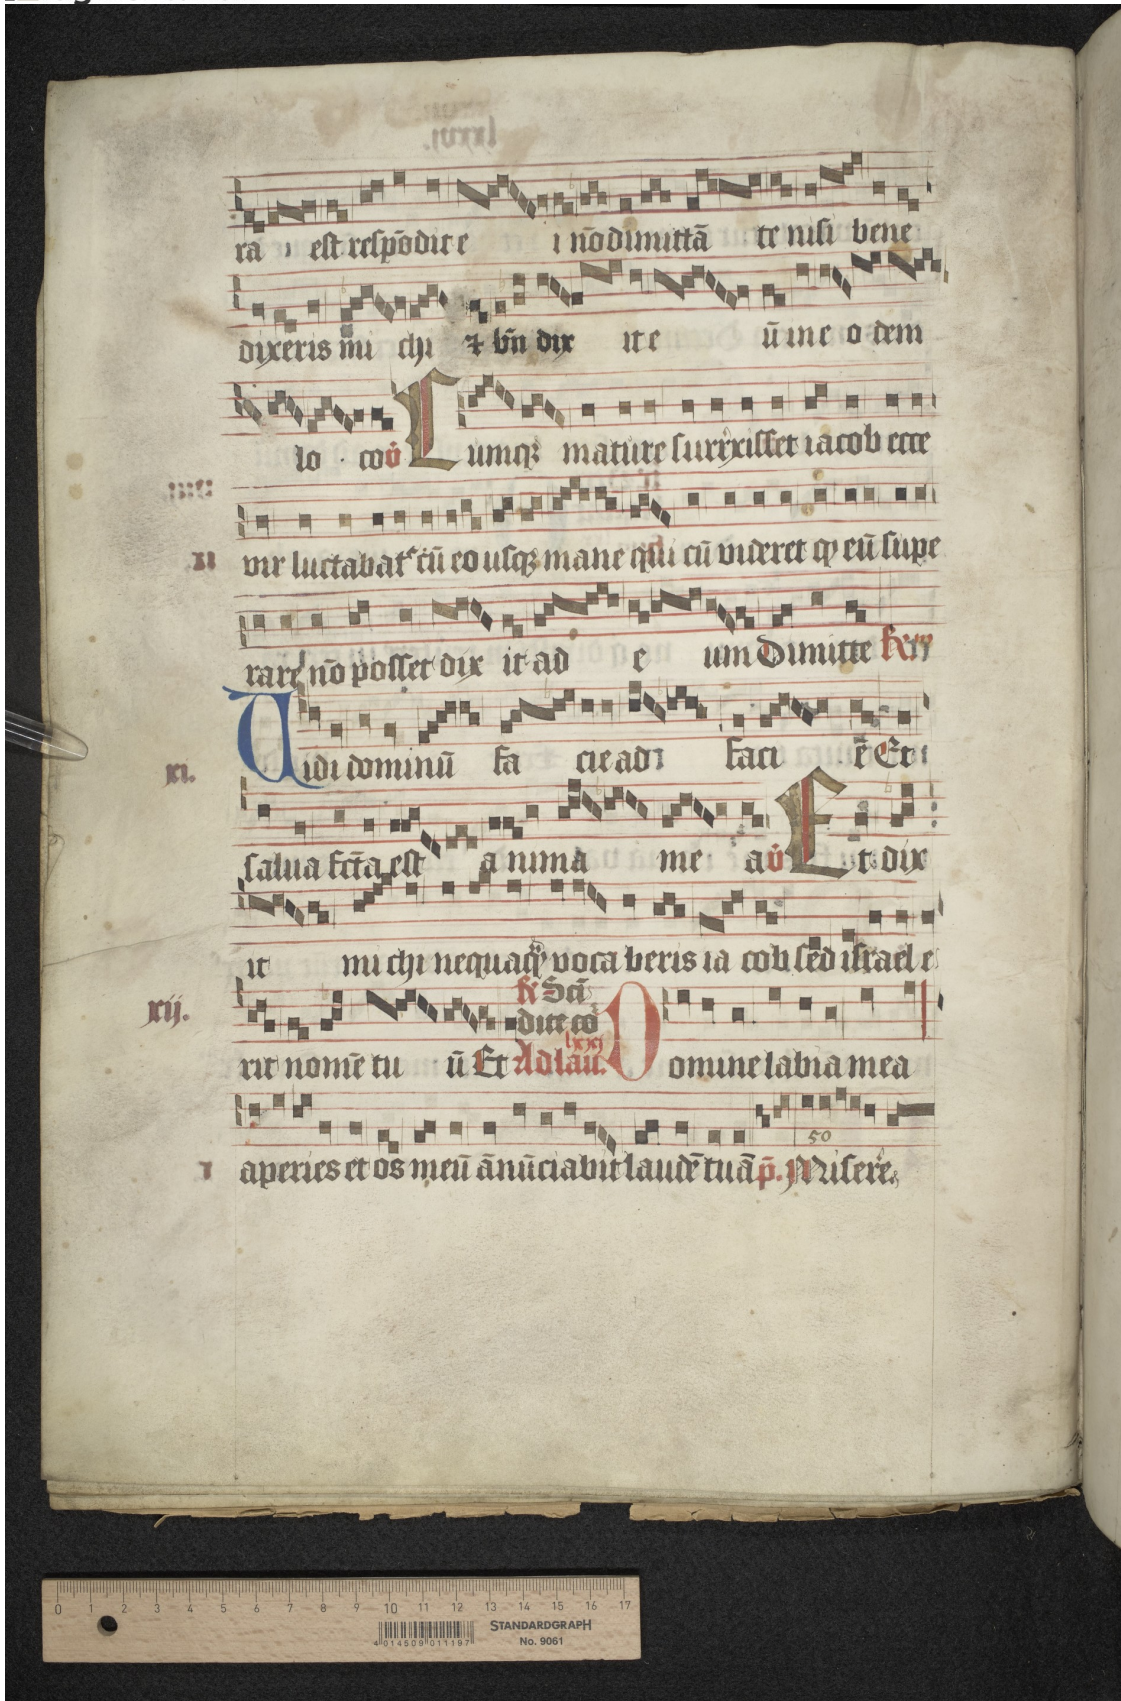 ra est respōdit e i nō dimittā te nisi bene
dixeris mi chi ⁊ bn̄ dix it e ū in e o dem
lo co v̄ Cumq; mature surrexisset iacob ecce
vir luctabat᷑ cū eo usq; mane qui cū videret ꝙ eū supe
rare nō posset dix it ad e um Dimitte
xi.
Uidi dominū fa cie ad faci ē Et
salua fcta est anima me a v̄ Et dix
it mi chi nequaq̄ voca beris ia cob sed israel e
xij.
rit nomē tu ū Et
Ad lau. Domine labia mea
aperies et os meū ānūciabit laudē tuā p̄. Misere
50
0 1 2 3 4 5 6 7 8 9 10 11 12 13 14 15 16 17
STANDARDGRAPH
No. 9061
4 014509 011197